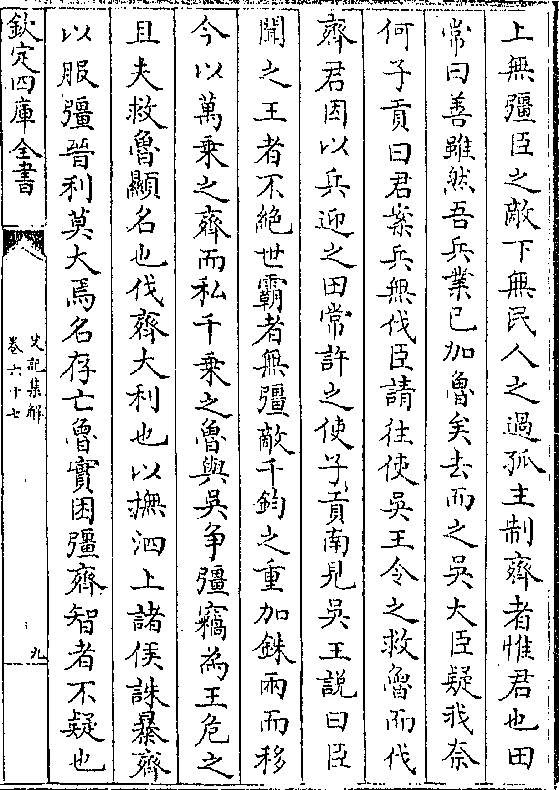 上無彊臣之敵下無民人之過孤主制齊者惟君也田
常曰善雖然吾兵業已加魯矣去而之吳大臣疑我奈
何子貢曰君案兵無伐臣請往使吳王令之救魯而伐
齊君因以兵迎之田常許之使子貢南見吳王説曰臣
聞之王者不絶世霸者無彊敵千鈞之重加銖兩而移
今以萬乗之齊而私千乗之魯與吳争彊竊為王危之
且夫救魯顯名也伐齊大利也以撫泗上諸侯誅暴齊
以服彊晉利莫大焉名存亡魯實困彊齊智者不疑也
欽定四庫全書
史記集解
卷六十七
九